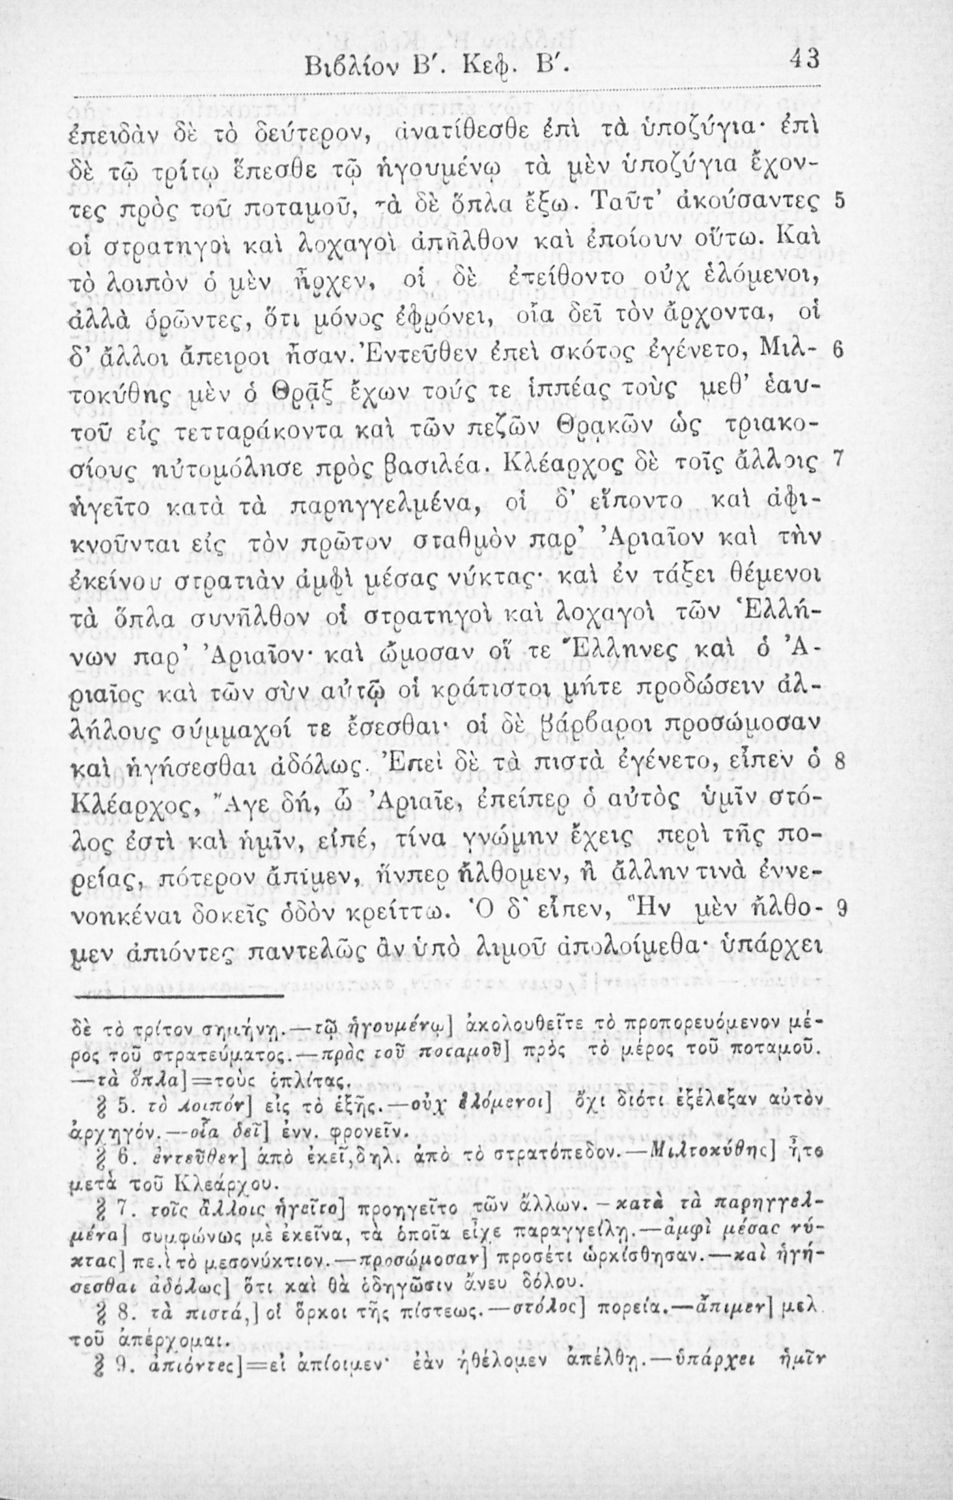 Βιβλίον Β′. Κεφ. Β′. 43
ἐπειδὰν δὲ τὸ δεύτερον, ἀνατίθεσθε ἐπὶ τὰ ὑποζύγια· ἐπὶ
δὲ τῷ τρίτῳ ἕπεσθε τῷ ἡγουμένῳ τὰ μὲν ὑποζύγια ἔχον-
τες πρὸς τοῦ ποταμοῦ, τὰ δὲ ὅπλα ἔξω. Ταῦτ’ ἀκούσαντες 5
οἱ στρατηγοὶ καὶ λοχαγοὶ ἀπῆλθον καὶ ἐποίουν οὕτω. Καὶ
τὸ λοιπὸν ὁ μὲν ἦρχεν, οἱ δὲ ἐπείθοντο οὐχ ἑλόμενοι,
ἀλλὰ ὁρῶντες, ὅτι μόνος ἐφρόνει, οἷα δεῖ τὸν ἄρχοντα, οἱ
δ’ ἄλλοι ἄπειροι ἦσαν. Ἐντεῦθεν ἐπεὶ σκότος ἐγένετο, Μιλ- 6
τοκύθης μὲν ὁ Θρᾷξ ἔχων τούς τε ἱππέας τοὺς μεθ’ ἑαυ-
τοῦ εἰς τετταράκοντα καὶ τῶν πεζῶν Θρᾳκῶν ὡς τριακο-
σίους ηὐτομόλησε πρὸς βασιλέα. Κλέαρχος δὲ τοῖς ἄλλοις 7
ἡγεῖτο κατὰ τὰ παρηγγελμένα, οἱ δ’ εἵποντο καὶ ἀφι-
κνοῦνται εἰς τὸν πρῶτον σταθμὸν παρ’ Ἀριαῖον καὶ τὴν
ἐκείνου στρατιὰν ἀμφὶ μέσας νύκτας· καὶ ἐν τάξει θέμενοι
τὰ ὅπλα συνῆλθον οἱ στρατηγοὶ καὶ λοχαγοὶ τῶν Ἑλλή-
νων παρ’ Ἀριαῖον· καὶ ὤμοσαν οἵ τε Ἕλληνες καὶ ὁ Ἀ-
ριαῖος καὶ τῶν σὺν αὐτῷ οἱ κράτιστοι μήτε προδώσειν ἀλ-
λήλους σύμμαχοί τε ἔσεσθαι· οἱ δὲ βάρβαροι προσώμοσαν
καὶ ἡγήσεσθαι ἀδόλως. Ἐπεὶ δὲ τὰ πιστὰ ἐγένετο, εἶπεν ὁ 8
Κλέαρχος, Ἄγε δή, ὦ Ἀριαῖε, ἐπείπερ ὁ αὐτὸς ὑμῖν στό-
λος ἐστὶ καὶ ἡμῖν, εἰπέ, τίνα γνώμην ἔχεις περὶ τῆς πο-
ρείας, πότερον ἄπιμεν, ἥνπερ ἤλθομεν, ἢ ἄλλην τινὰ ἐννε-
νοηκέναι δοκεῖς ὁδὸν κρείττω. Ὁ δ’ εἶπεν, Ἣν μὲν ἤλθο- 9
μεν ἀπιόντες παντελῶς ἂν ὑπὸ λιμοῦ ἀπολοίμεθα· ὑπάρχει
δὲ τὸ τρίτον σημήνῃ.—τῷ ἡγουμένῳ] ἀκολουθεῖτε τὸ προπορευόμενον μέ-
ρος τοῦ στρατεύματος.—πρὸς τοῦ ποταμοῦ] πρὸς τὸ μέρος τοῦ ποταμοῦ.
—τὰ ὅπλα]=τοὺς ὁπλίτας.
§ 5. τὸ λοιπόν] εἰς τὸ ἑξῆς.—οὐχ ἑλόμενοι] ὄχι διότι ἐξέλεξαν αὐτὸν
ἀρχηγόν.—οἷα δεῖ] ἐνν. φρονεῖν.
§ 6. ἐντεῦθεν] ἀπὸ ἐκεῖ, δηλ. ἀπὸ τὸ στρατόπεδον.—Μιλτοκύθης] ἦτο
μετὰ τοῦ Κλεάρχου.
§ 7. τοῖς ἄλλοις ἡγεῖτο] προηγεῖτο τῶν ἄλλων.—κατὰ τὰ παρηγγελ-
μένα] συμφώνως μὲ ἐκεῖνα, τὰ ὁποῖα εἶχε παραγγείλῃ.—ἀμφὶ μέσας νύ-
κτας] περὶ τὸ μεσονύκτιον.—προσώμοσαν] προσέτι ὡρκίσθησαν.—καὶ ἡγή-
σεσθαι ἀδόλως] ὅτι καὶ θὰ ὁδηγῶσιν ἄνευ δόλου.
§ 8. τὰ πιστά,] οἱ ὅρκοι τῆς πίστεως.—στόλος] πορεία.—ἄπιμεν] μελ.
τοῦ ἀπέρχομαι.
§ 9. ἀπιόντες]=εἰ ἀπίοιμεν· ἐὰν ἠθέλομεν ἀπέλθῃ.—ὑπάρχει ἡμῖν